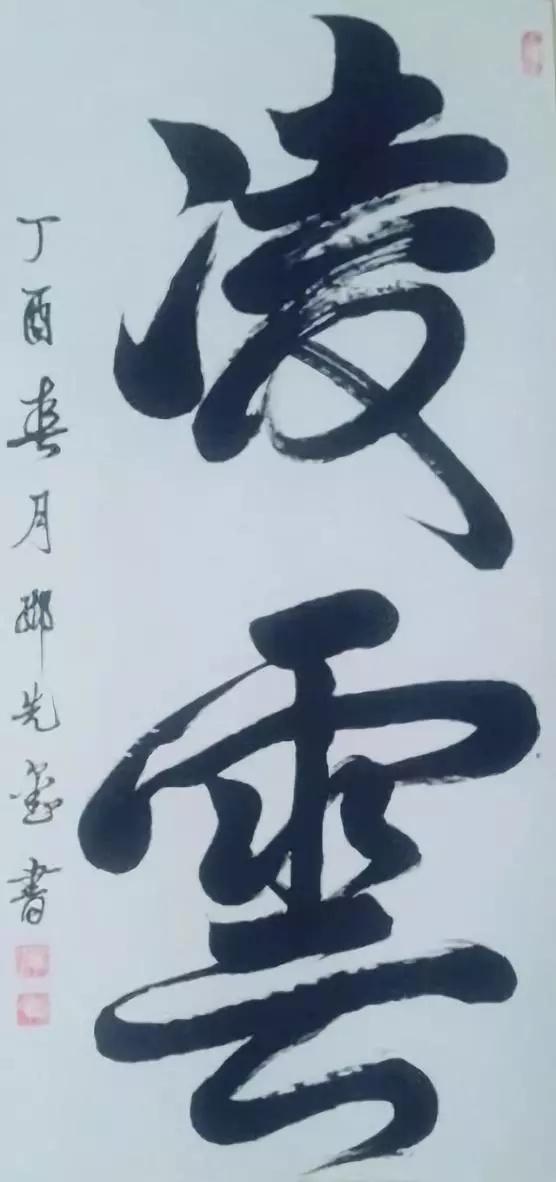 凌雲
丁酉春月 先 書